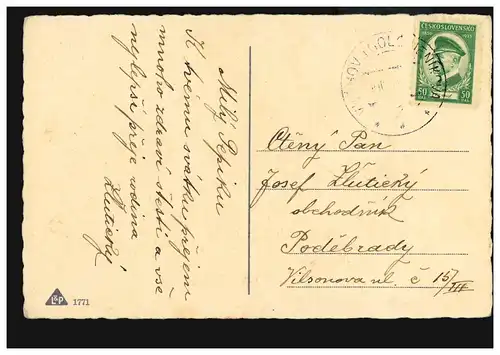 Milý Pepíku
K tvému svátku přejem
mnoho zdraví štěstí a vše
nejlepší přeje rodina
Žlutický
L&P 1771
ČESKOSLOVENSKO
1850 1935
50 50
Ctěný Pan
Josef Žlutický
obchodník
Poděbrady
Vilsonova ul. č 15/III